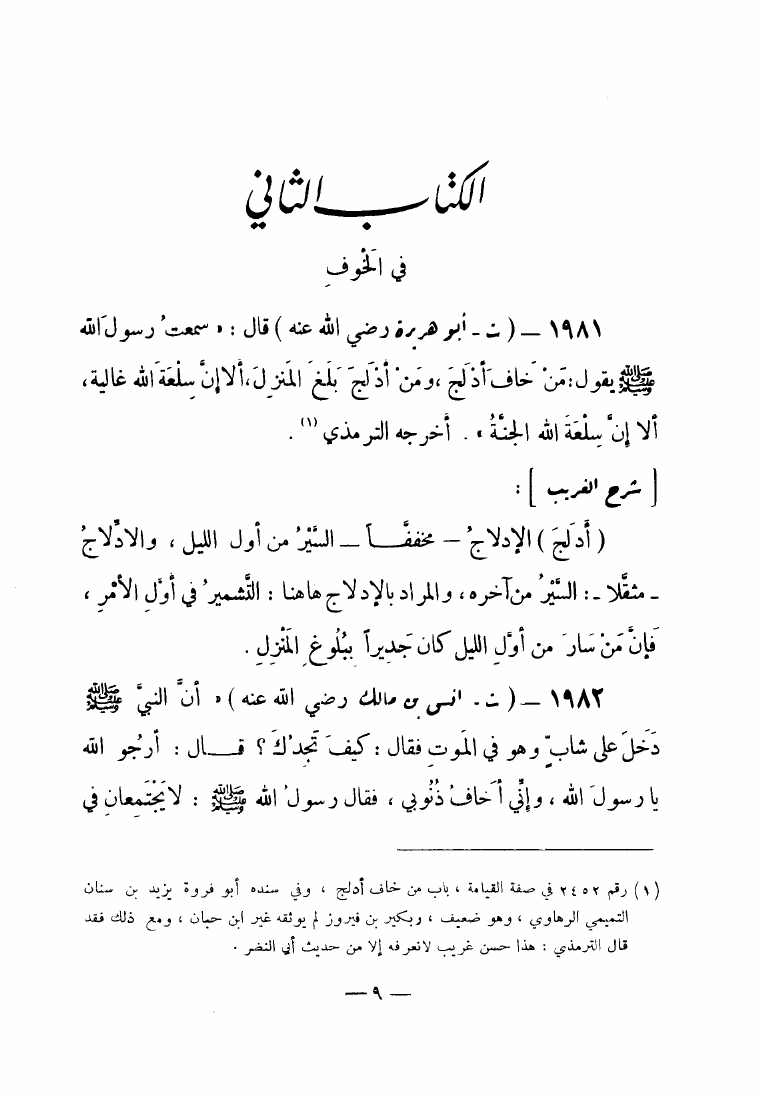 الكتاب الثاني
في الخَوفِ
١٩٨١ — ( ت - أبو هريرة رضي الله عنه ) قال : « سمعتُ رسولَ الله
ﷺ يقول : مَنْ خافَ أَدْلَجَ ، ومَنْ أدْلَجَ بَلَغَ المَنْزِلَ ، ألا إنَّ سِلْعَةَ الله غالية ،
ألا إنَّ سِلْعَةَ الله الجنَّةُ » . أخرجه الترمذي (١) .
[ شرح الغريب ] :
( أَدْلَجَ ) الإدلاجُ — مخففاً — السَّيْرُ من أول الليل ، والادِّلاجُ
- مثقَّلا - : السَّيْرُ من آخره ، والمراد بالإدلاج هاهنا : التَّشميرُ في أوَّلِ الأمْرِ ،
فإنَّ مَنْ سَارَ من أوَّلِ الليل كان جَديراً بِبُلُوغِ المَنْزِلِ .
١٩٨٢ — ( ت - أنس بن مالك رضي الله عنه ) « أنَّ النبيَّ ﷺ
دَخَلَ على شابٍّ وهو في المَوتِ فقال : كيفَ تَجِدُكَ ؟ قــال : أرْجُو اللهَ
يا رسولَ الله ، وإنِّي أخافُ ذُنُوبي ، فقال رسولُ الله ﷺ : لا يَجْتَمِعانِ في
(١) رقم ٢٤٥٢ في صفة القيامة ، باب من خاف أدلج ، وفي سنده أبو فروة يزيد بن سنان
التميمي الرهاوي ، وهو ضعيف ، وبكير بن فيروز لم يوثقه غير ابن حبان ، ومع ذلك فقد
قال الترمذي : هذا حسن غريب لانعرفه إلا من حديث أبي النضر .
— ٩ —